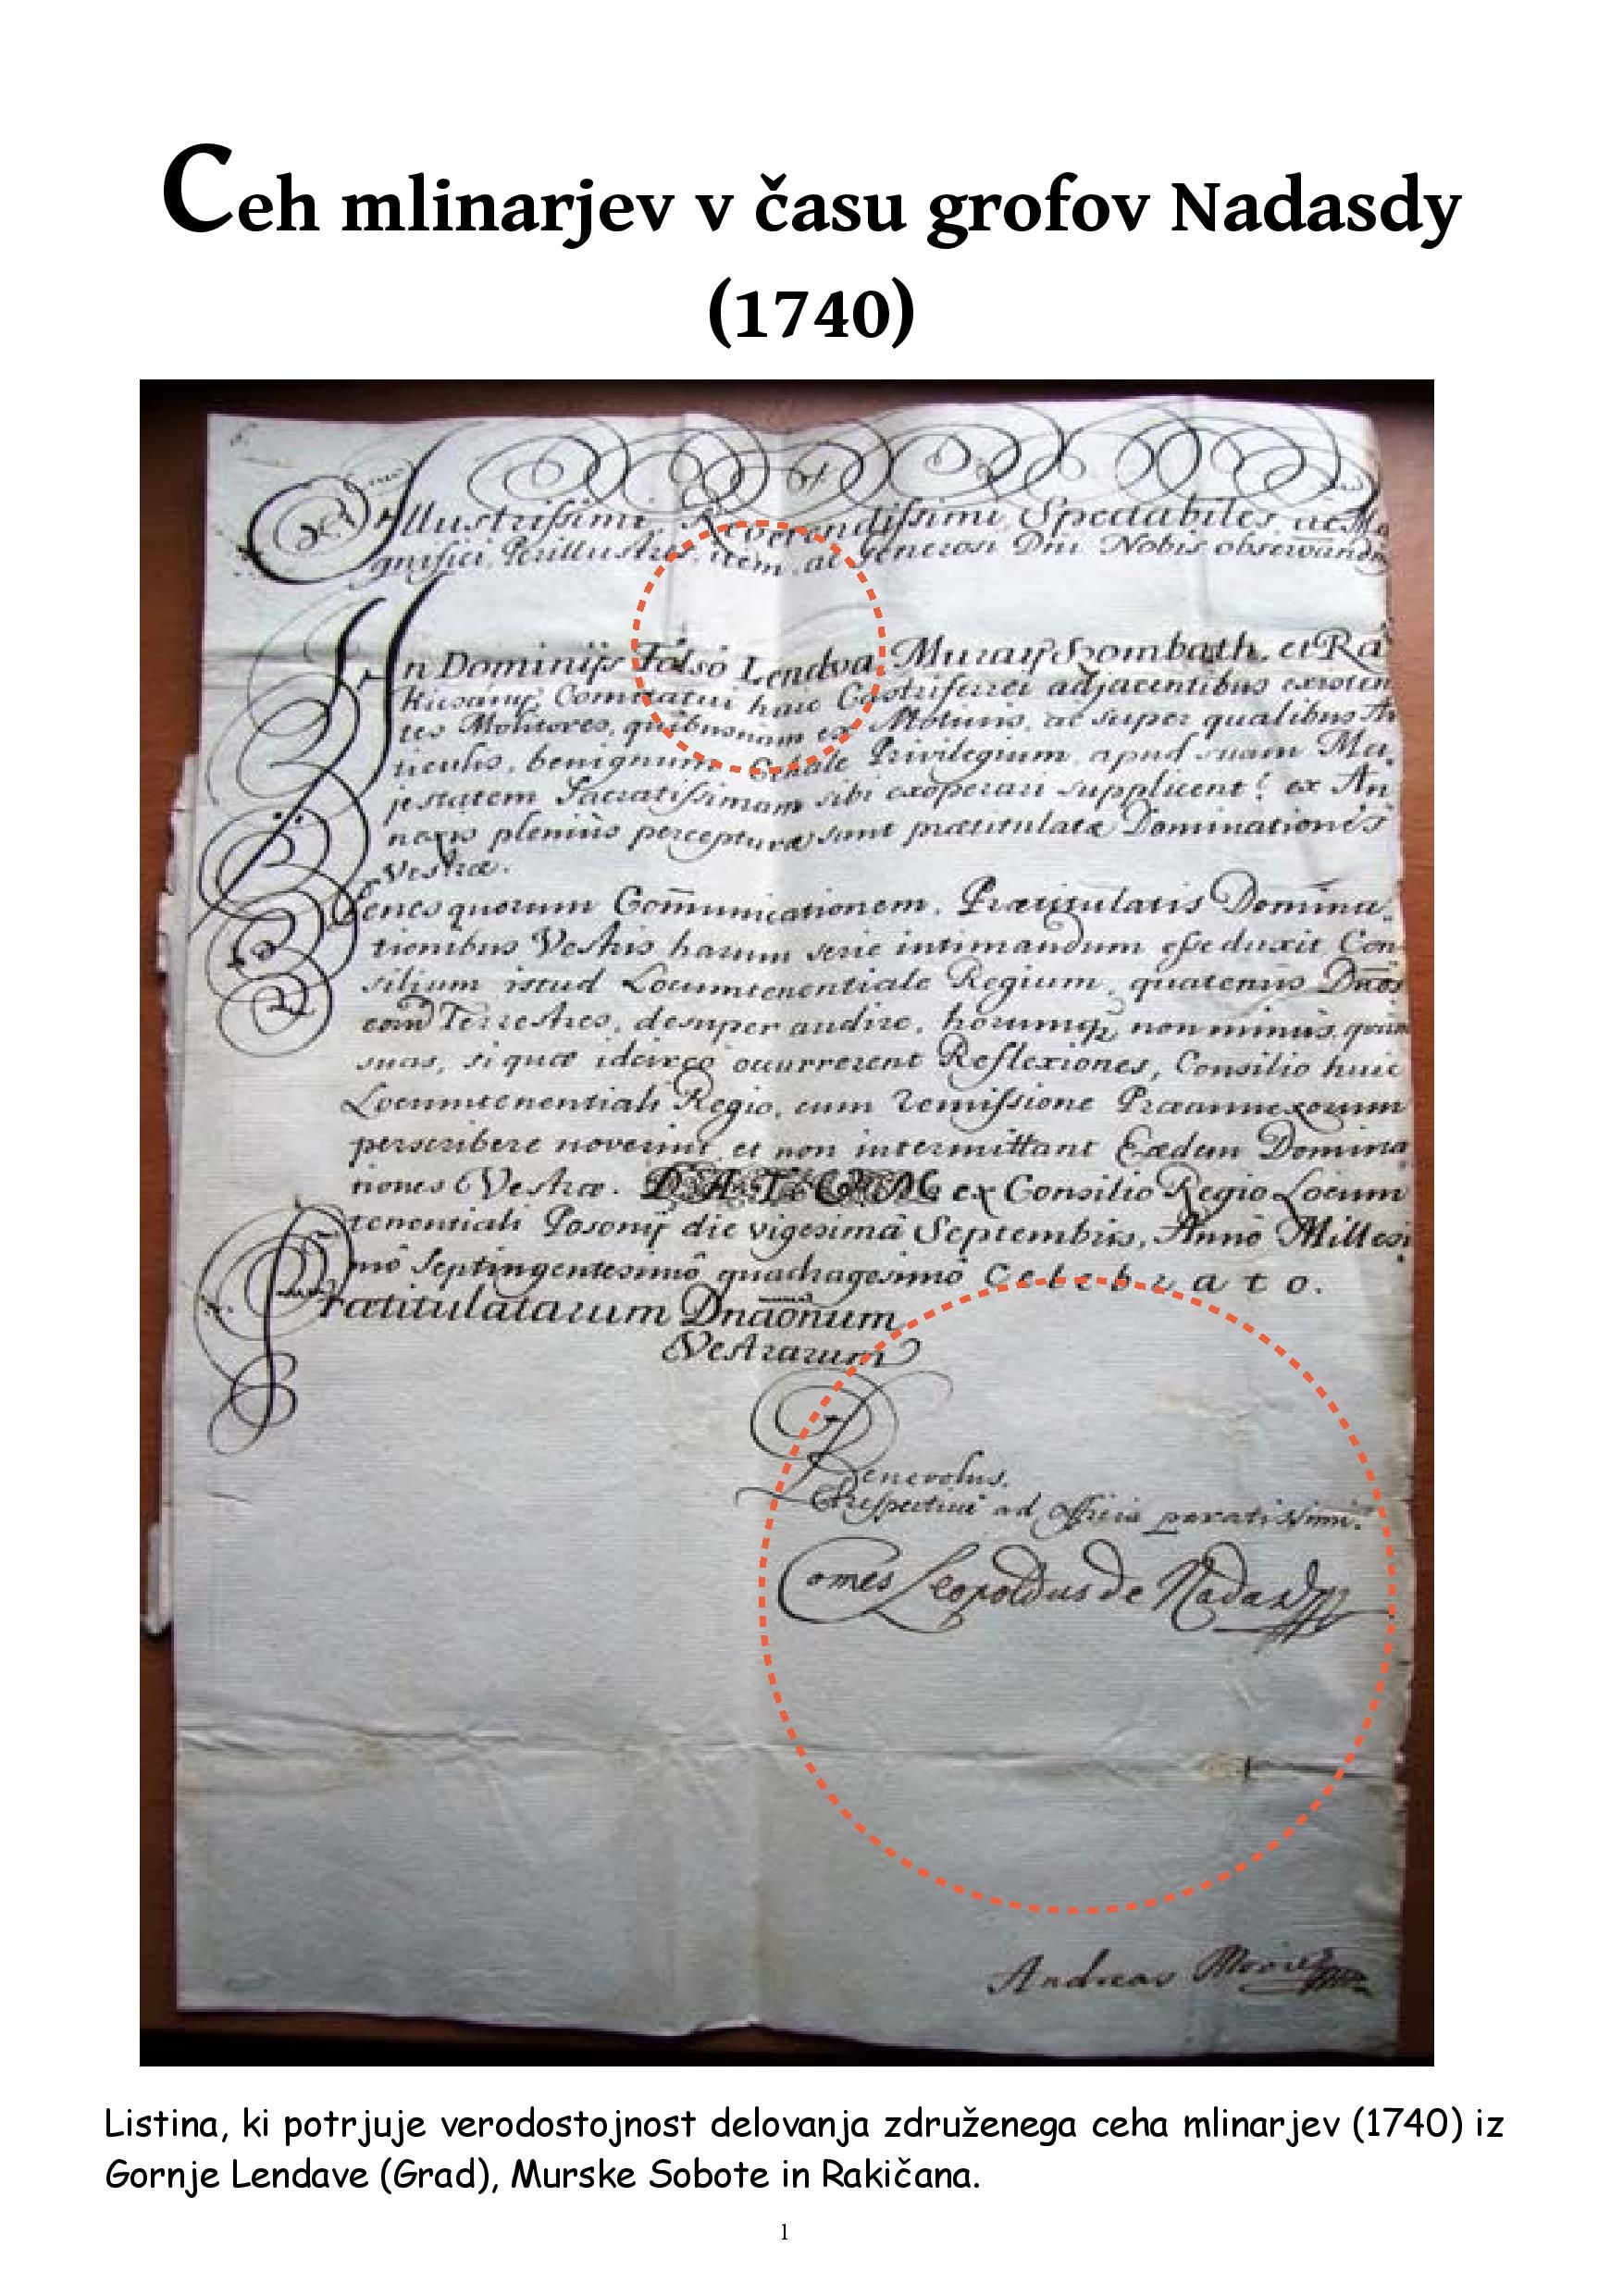 Ceh mlinarjev v času grofov Nadasdy
(1740)
Illustrissimi, Reverendissimi, Spectabiles, ac Ma
gnifici, Perillustres, item, ac Generosi Dni Nobis observandi
In Dominijs Folsó Lendva, Muraÿ Szombath, et Ra
Comitatui huic Castriferrei adjacentibus existen
tes Molitores, quibusnam ex Motivis, ac super qualibus Ar
ticulis, benignum Cehale Privilegium, apud suam Ma
jestatem Sacratissimam sibi exoperari supplicent? ex An
nexis pleniùs percepturæ sunt prætitulatæ Dominationes
Vestræ.
Penes quorum Com̄unicationem, Prætitulatis Domina
tionibus Vestris harum serie intimandum esse duxit Con
silium istud Locumtenentiale Regium, quatenus Dn̄os
Terrestres, desuper audire, horumq̨ non minus, quàm
suas, si quæ idcirco occurrerent Reflexiones, Consilio huic
Locumtenentiali Regio, cum remissione Præannexorum
perscribere noverint, et non intermittant Eædem Domina
tiones Vestræ. DATUM ex Consilio Regio Locum
tenentiali Posonÿ die vigesimâ Septembris, Annô Millesi
mô Septingentesimô quadragesimô Celebrato.
Prætitulatarum Dnāonum
Vestrarum
Benevolus.
Et respectivè ad officia paratissimi.
Comes Leopoldus de Nadasdy
Andreas
Listina, ki potrjuje verodostojnost delovanja združenega ceha mlinarjev (1740) iz
Gornje Lendave (Grad), Murske Sobote in Rakičana.
1